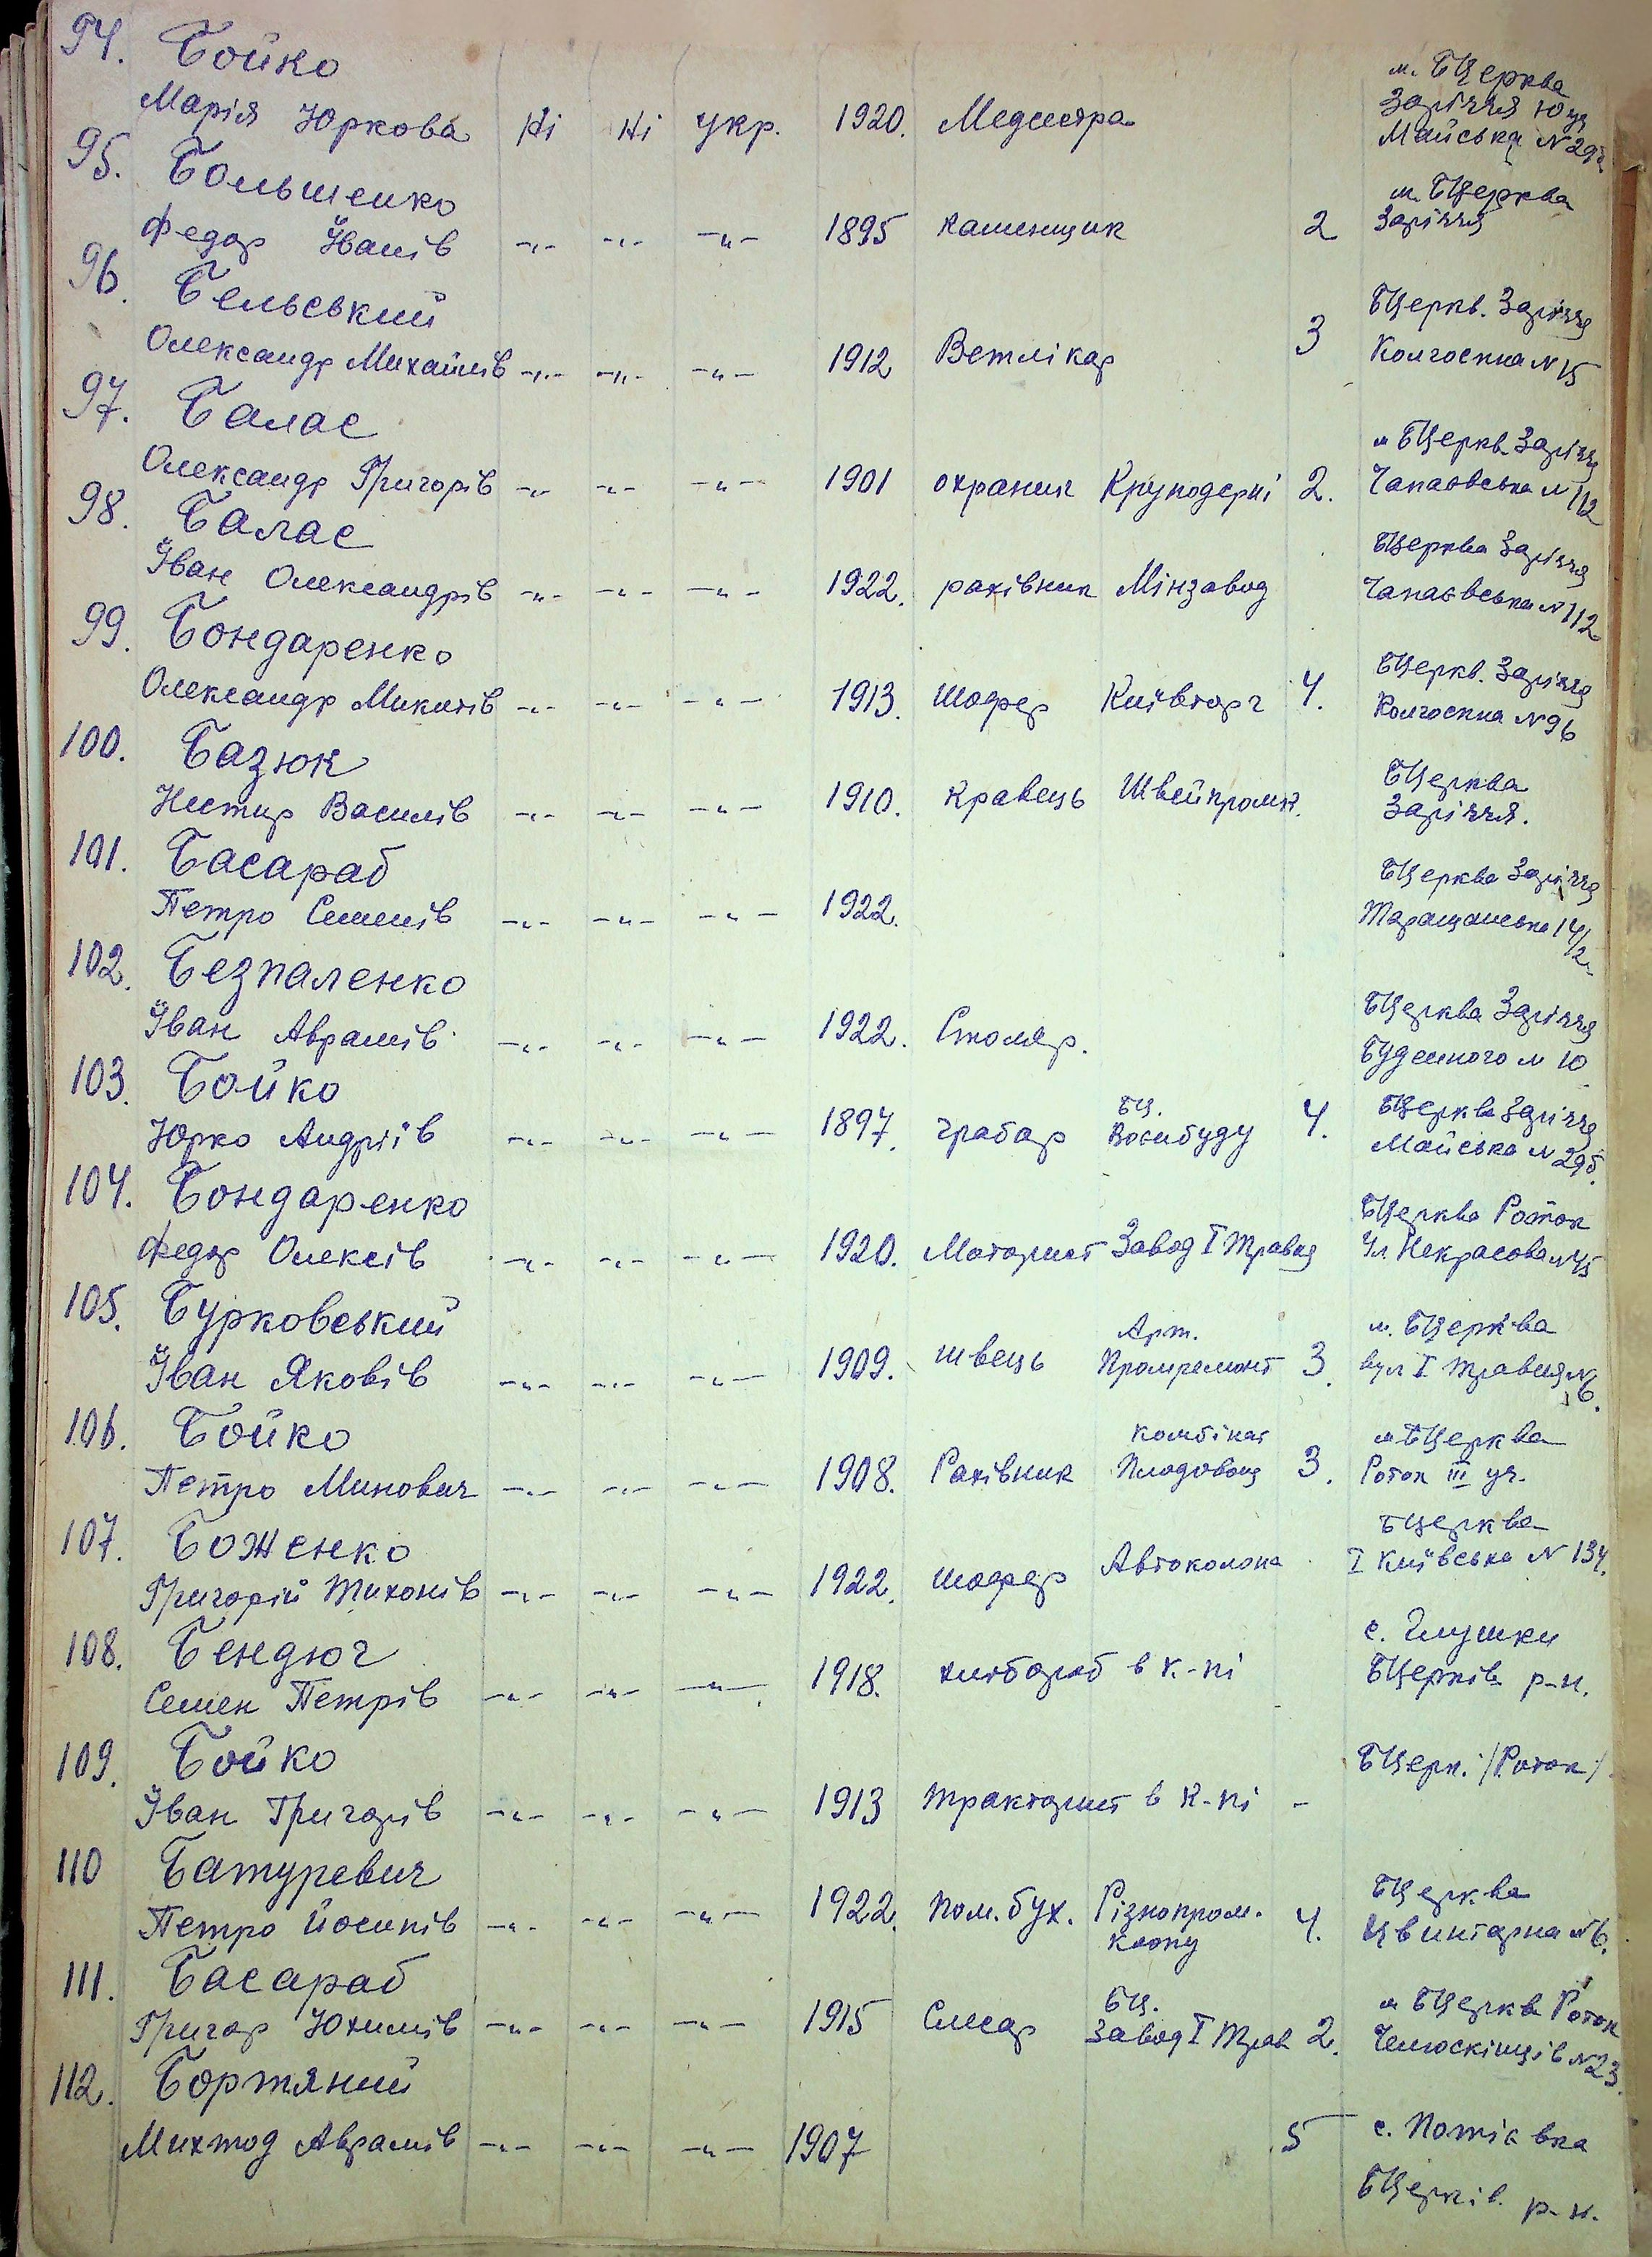 94. Бойко
Марія Юркова Ні Ні укр. 1920. Медсестра м. БЦерква
Заріччя Юця
Майська N 29б
95. Большенко
Федор Іванів -„- -„- -„- 1895 каменщик 2 м. БЦерква
Заріччя
96. Бельський
Олександр Михайлів -„- -„- -„- 1912 Ветлікар 3 БЦеркв. Заріччя
Колгоспна N 15
97. Балас
Олександр Григорів -„- -„- -„- 1901 охраник Круподерні 2. м БЦеркв Заріччя
Чапаєвська N 112
98. Балас
Іван Олександрів -„- -„- -„- 1922. рахівник Мінзавод БЦерква Заріччя
Чапаєвська N 112
99. Бондаренко
Олександр Микитів -„- -„- -„- 1913. шофер Київторг 4. БЦеркв. Заріччя
Колгоспна N 96
100. Базюк
Нестир Василів -„- -„- -„- 1910. кравець Швейпромк. БЦерква
Заріччя.
101. Басараб
Петро Семенів -„- -„- -„- 1922. БЦерква Заріччя
Таращанська 14/2
102. Безпаленко
Іван Аврамів -„- -„- -„- 1922. Столяр. БЦерква Заріччя
Буденного N 10
103. Бойко
Юрко Андріїв -„- -„- -„- 1897. грабар БЦ. Воєнбуду 4. БЦерква Заріччя
Майська N 29б.
104. Бондаренко
Федор Олексів -„- -„- -„- 1920. Моторист Завод I Травня БЦерква Роток
Ул Некрасова N 45
105. Бурковський
Іван Яковів -„- -„- -„- 1909. швець Арт. Промремонт 3. м. БЦерква
вул I травня N 6.
106. Бойко
Петро Минович -„- -„- -„- 1908. Рахівник комбінат Плодовощ 3. м БЦерква
Роток III уч.
107. Боженко
Григорій Тихонів -„- -„- -„- 1922. шофер Автоколона БЦерква
I Київська N 134.
108. Бендюг
Семен Петрів -„- -„- -„- 1918. хлібороб в к-пі с. Глушки
БЦерків р-н.
109. Бойко
Іван Григорів -„- -„- -„- 1913 тракторист в к-пі - БЦерк. /Роток/.
110 Батуревич
Петро Йосипів -„- -„- -„- 1922. пом. бух. Різнопром.
коопу 4. БЦерква
Цвинтарна N 6.
111. Басараб
Григор Юхимів -„- -„- -„- 1915 Слесар БЦ.
Завод I Трав 2. м БЦерква Роток
Челюскінців N 23.
112. Бортяний
Михтод Аврамів -„- -„- -„- 1907 5 с. Потіївка
БЦерків. р-н.